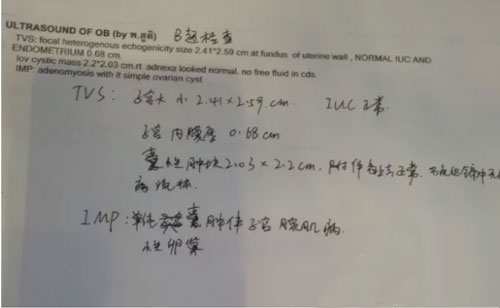 ULTRASOUND OF OB (by พ.ภูติ) B超检查
TVS: focal heterogenous echogenicity size 2.41*2.59 cm at fundus of uterine wall , NORMAL IUC AND
ENDOMETRIUM 0.68 cm.
lov cystic mass 2.2*2.03 cm.rt adnexa looked normal, no free fluid in cds.
IMP: adenomyosis with lt simple ovarian cyst
TVS: 子宫大小 2.41×2.59 cm. IUC 正常.
子宫内膜厚 0.68 cm
囊性肿块 2.03 × 2.2 cm. 附件 正常.
液体.
IMP: 单纯 囊肿伴子宫腺肌病.
性卵巢